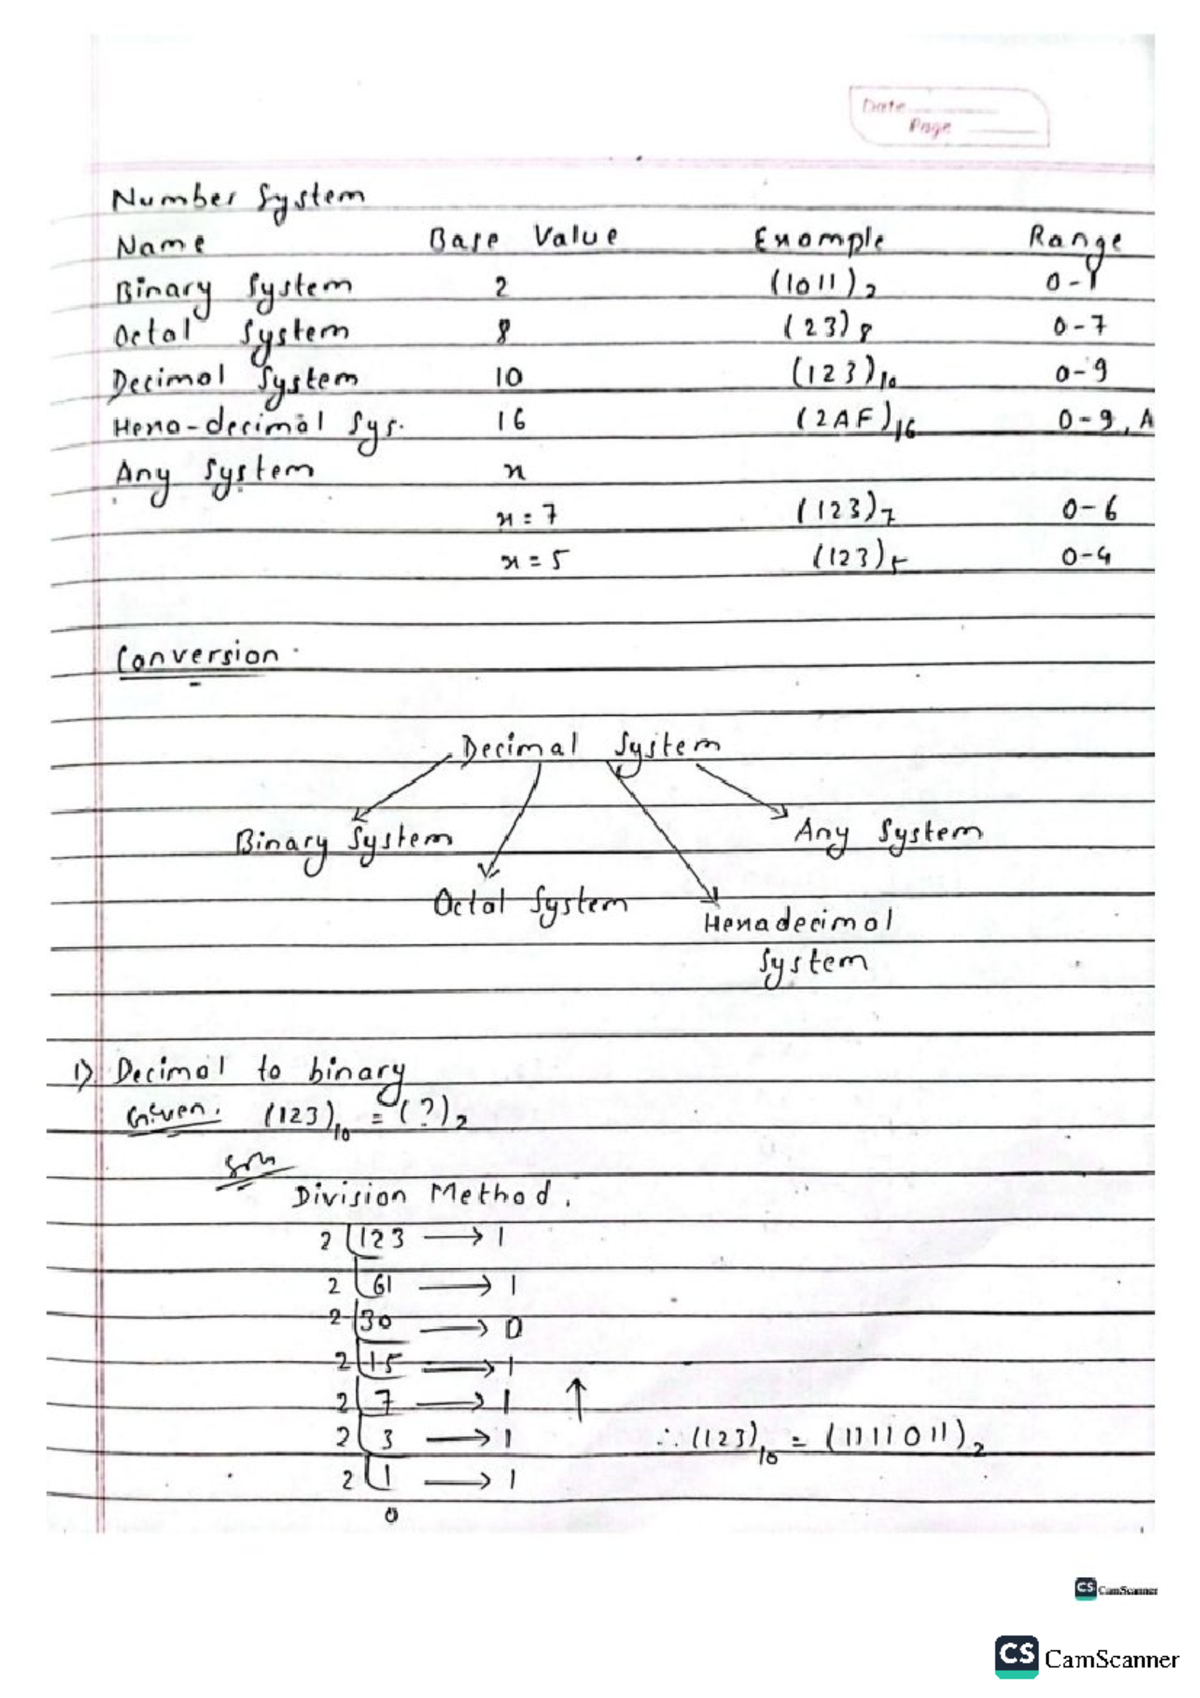 Date
Page
Number System
Name Base Value Example Range
Binary System 2 (1011)₂ 0-1
Octal System 8 (23)₈ 0-7
Decimal System 10 (123)₁₀ 0-9
Hexa-decimal Sys. 16 (2AF)₁₆ 0-9, A
Any System x
x = 7 (123)₇ 0-6
x = 5 (123)₅ 0-4
Conversion
Decimal System
Binary System Any System
Octal System Hexadecimal
System
1) Decimal to binary
Given. (123)₁₀ = (?)₂
Soln
Division Method.
2 | 123 → 1
2 | 61 → 1
2 | 30 → 0
2 | 15 → 1
2 | 7 → 1 ↑
2 | 3 → 1 ∴ (123)₁₀ = (1111011)₂
2 | 1 → 1
0
CS CamScanner
CS CamScanner